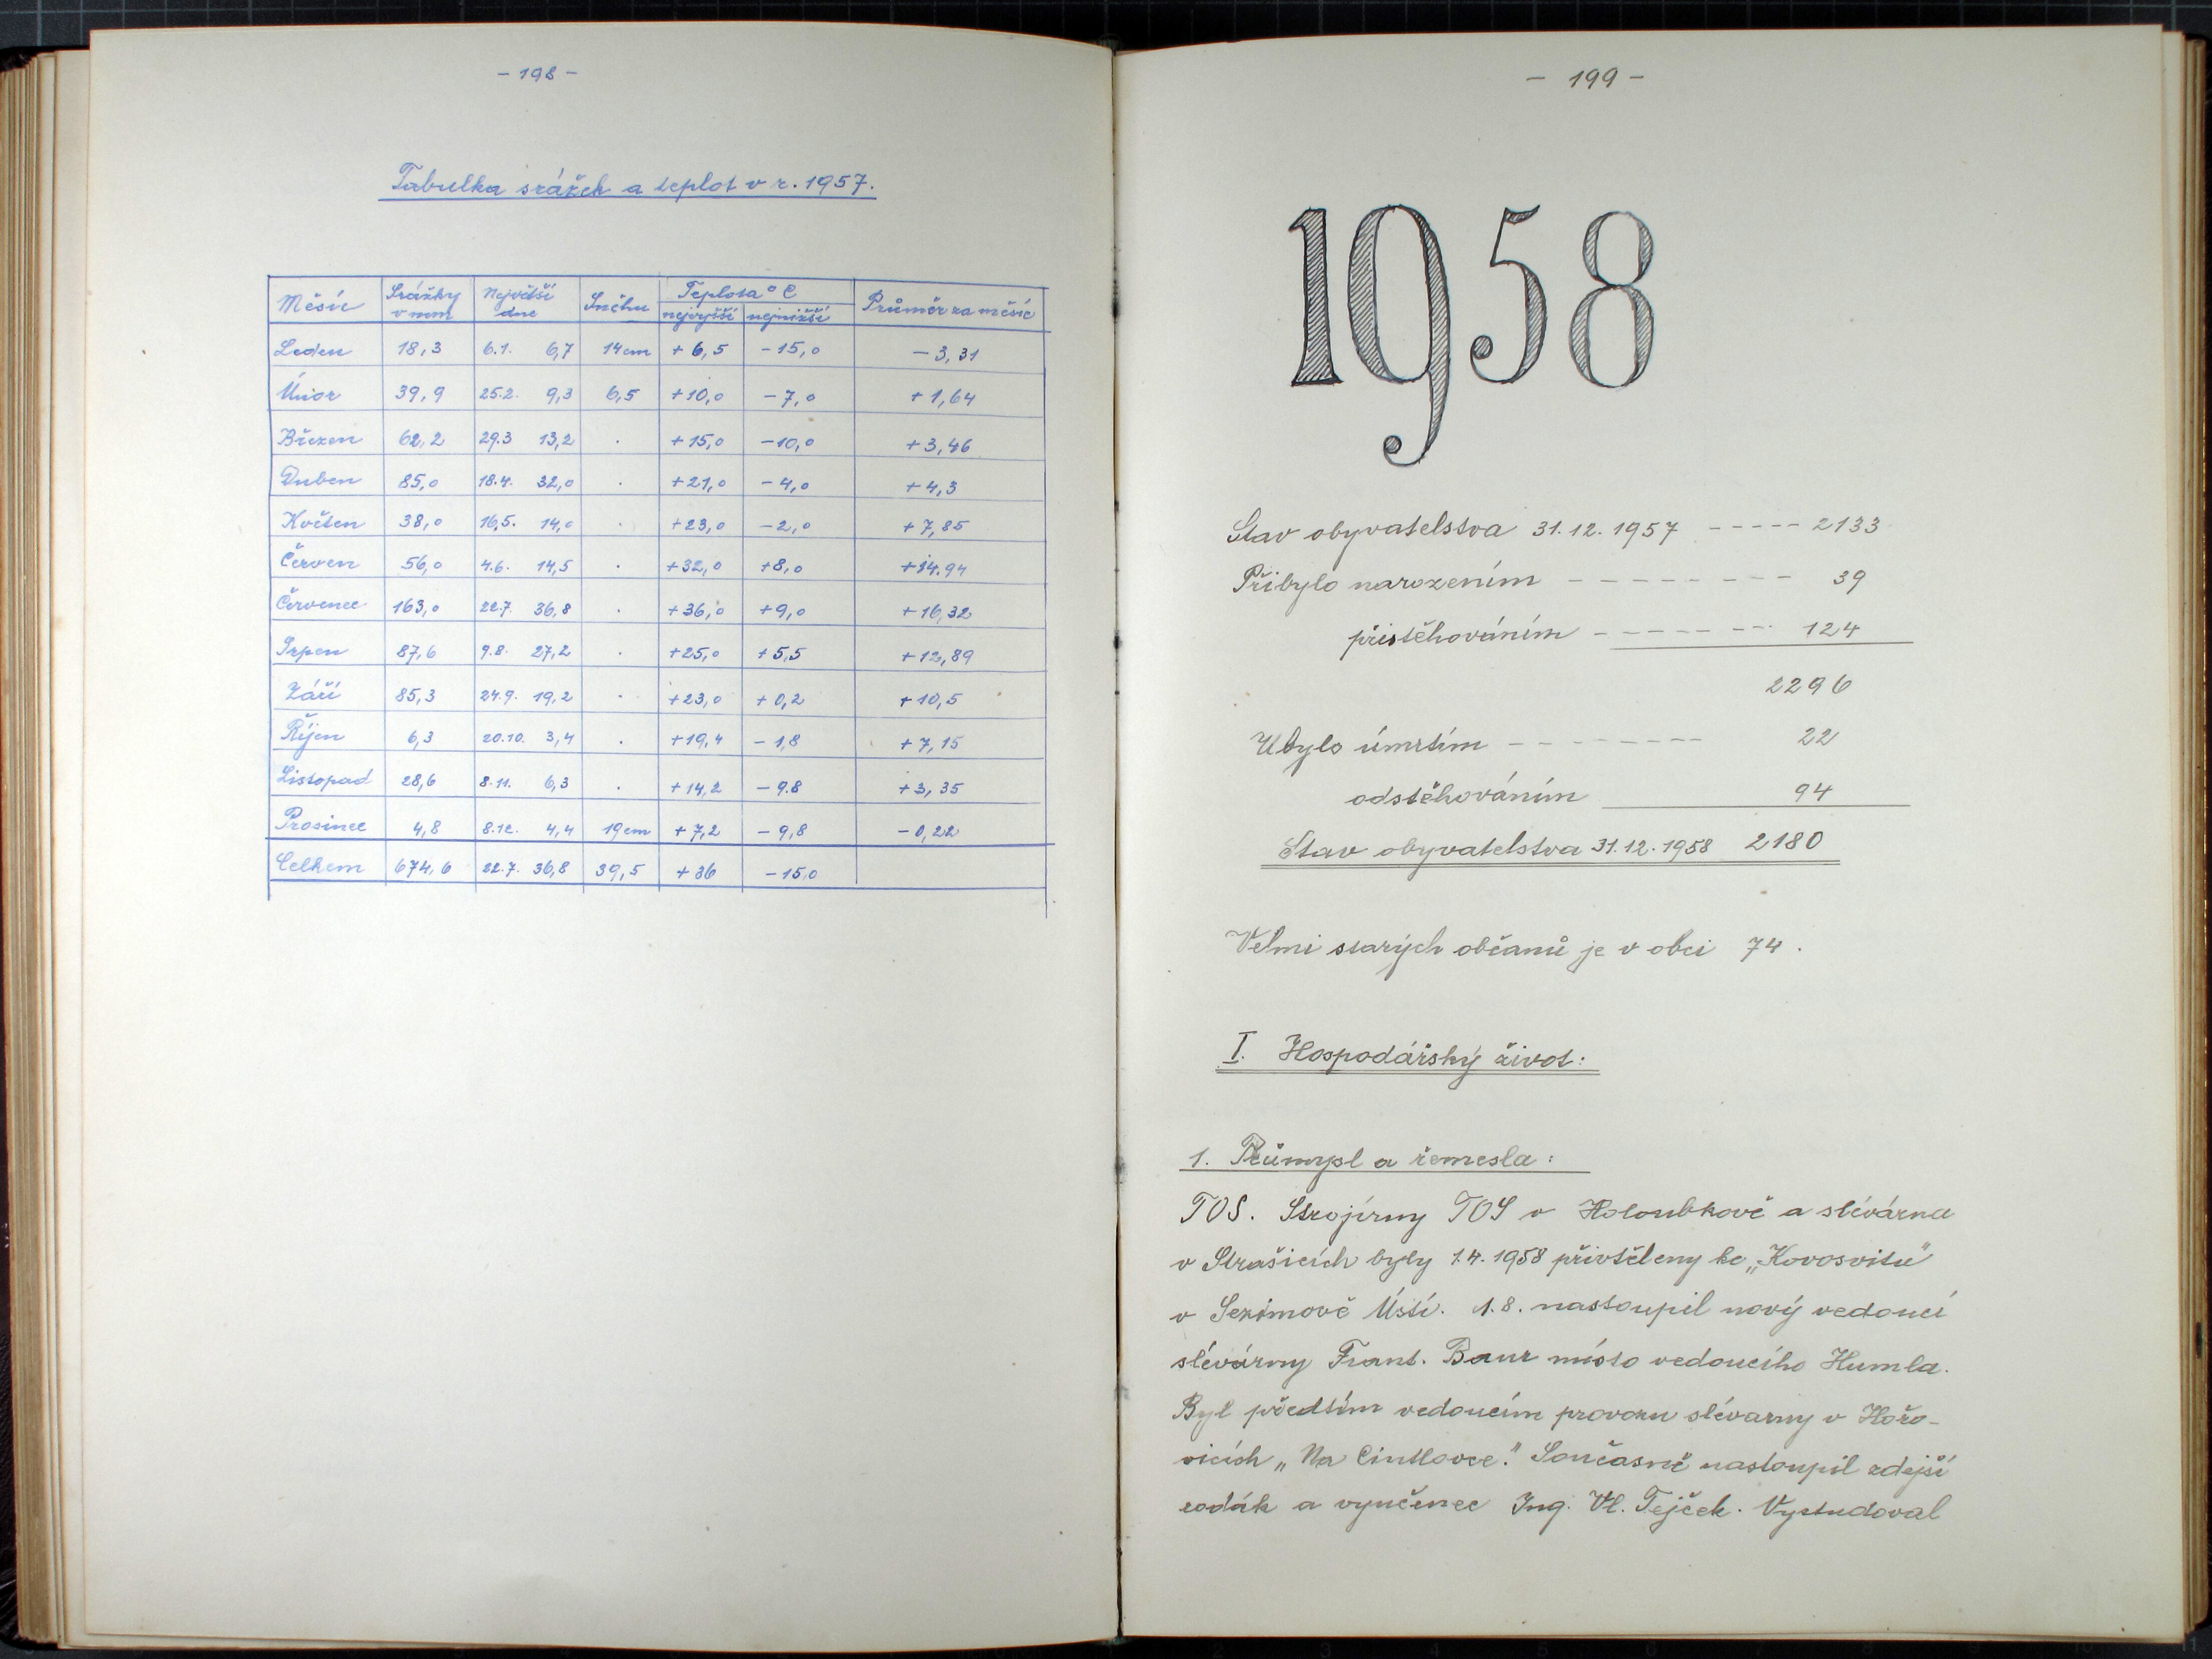 - 198 -
Tabulka srážek a teplot v r. 1957.
Měsíc Srážky v mm Největší dne Sněhu Teplota °C nejvyšší nejnižší Průměr za měsíc
Leden 18,3 6.1. 6,7 14cm +6,5 -15,0 -3,31
Únor 39,9 25.2. 9,3 6,5 +10,0 -7,0 +1,64
Březen 62,2 29.3 13,2 . +15,0 -10,0 +3,46
Duben 85,0 18.4. 32,0 . +21,0 -4,0 +4,3
Květen 38,0 16,5. 14,0 . +23,0 -2,0 +7,85
Červen 56,0 4.6. 14,5 . +32,0 +8,0 +14.94
Červenec 163,0 22.7. 36,8 . +36,0 +9,0 +16,32
Srpen 87,6 9.8. 27,2 . +25,0 +5,5 +12,89
Září 85,3 24.9. 19,2 . +23,0 +0,2 +10,5
Říjen 6,3 20.10. 3,4 . +19,4 -1,8 +7,15
Listopad 28,6 8.11. 6,3 . +14,2 -9.8 +3,35
Prosinec 4,8 8.12. 4,4 19cm +7,2 -9,8 -0,22
Celkem 674,6 22.7. 36,8 39,5 +36 -15,0
- 199 -
1958
Stav obyvatelstva 31.12.1957 ----- 2133
Přibylo narozením -------- 39
přistěhováním -------- 124
2296
Ubylo úmrtím -------- 22
odstěhováním 94
Stav obyvatelstva 31.12.1958 2180
Velmi starých občanů je v obci 74.
I. Hospodářský život:
1. Průmysl a řemesla:
TOS. Strojírny TOS v Holoubkově a slévárna
v Strašicích byly 1.4.1958 přivtěleny ke „Kovosvitu"
v Sezimově Ústí. 1.8. nastoupil nový vedoucí
slévárny Frant. Baur místo vedoucího Humla.
Byl předtím vedoucím provozu slévarny v Hořo-
vicích „Na Cintlovce." Současně nastoupil zdejší
rodák a vyučenec Ing. Vl. Tejček. Vystudoval